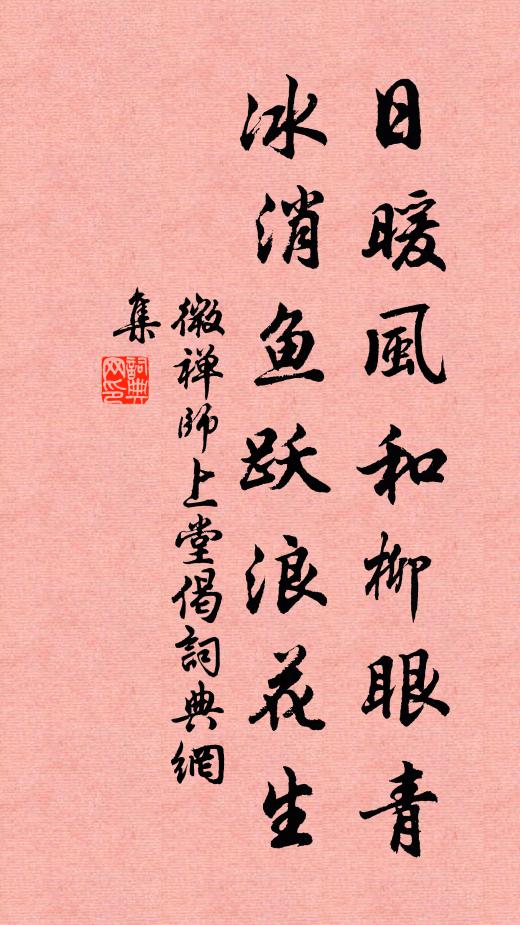 日暖風和柳眼青
冰消鱼跃浪花生
微禅師上堂偈詞典網
集
詞典
网印